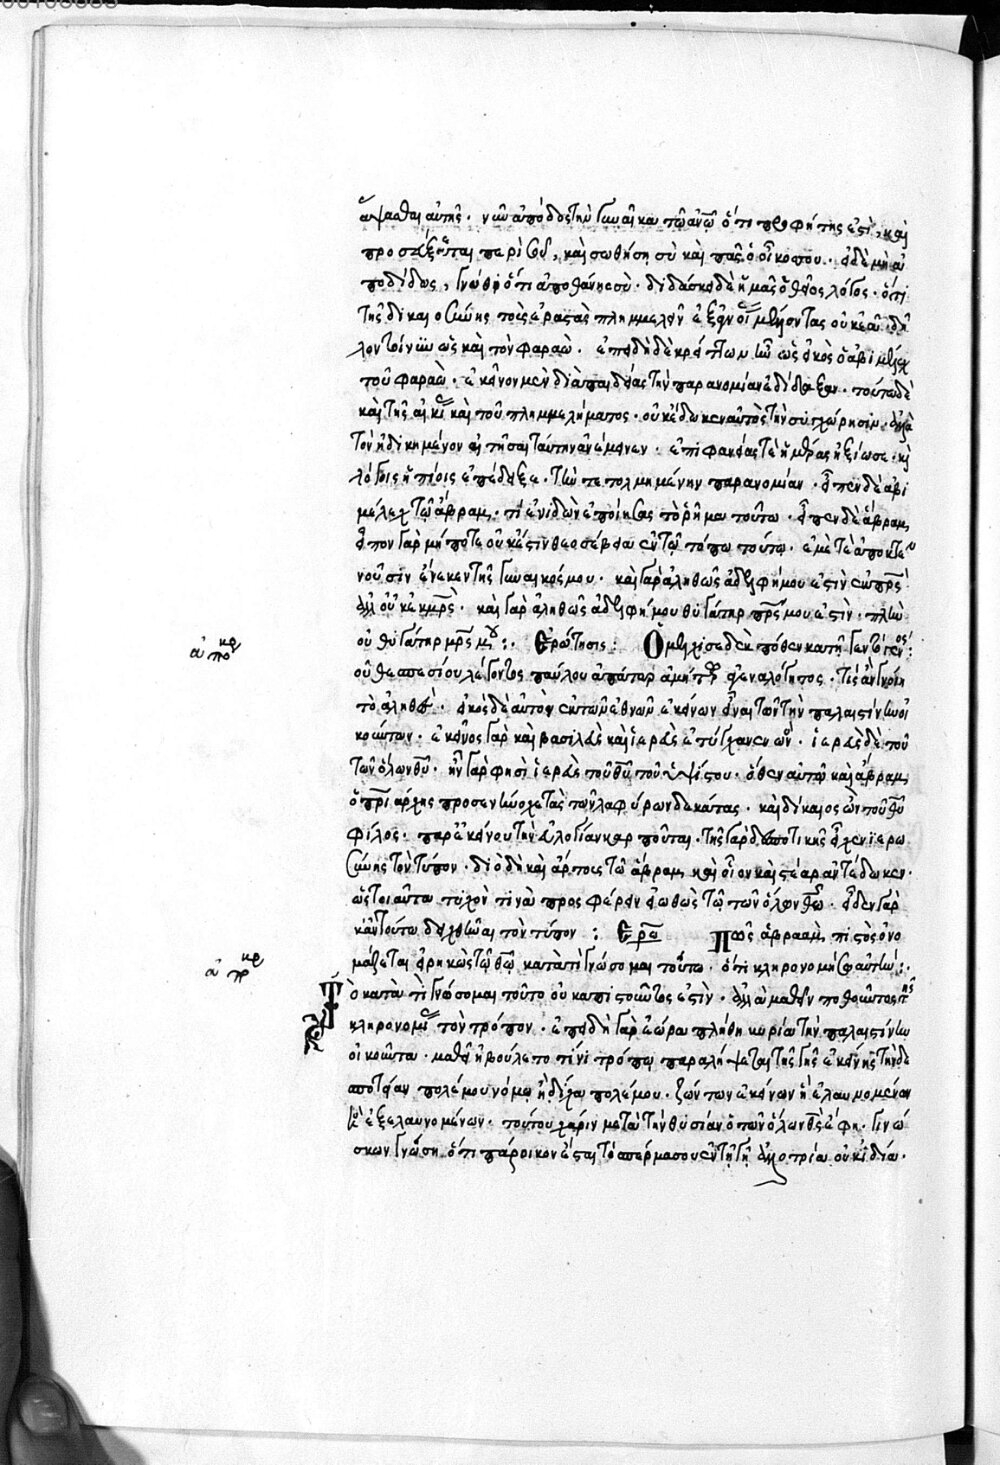 ἅψασθαι αὐτῆς. νῦν ἀπόδος τὴν γυναῖκα τῶ ἀνῶ ὅτι προφήτης ἐστὶ, καὶ
προσεύξεται περὶ σοῦ, καὶ σωθήση σὺ καὶ πᾶς ὁ οἶκος σου. εἰ δὲ μὴ ἀ
ποδίδως, γνῶθι ὅτι ἀποθάνῃ σὺ. διδάσκει δὲ ἡμᾶς ὁ θεῖος λόγος. ὅτι
τῆς δικαιοσύνης τοὺς ἐραστὰς πλημμελεῖν
λον τοίνυν ὡς καὶ τὸν φαραώ. ἐπειδὴ δὲ κρείττων ἦν ὡς εἰκὸς ὁ ἀβιμέλεχ
τοῦ φαραὼ. ἐκεῖνον μὲν διὰ παιδείας τὴν παρανομίαν ἐδίδαξεν. τούτω δὲ
καὶ τῆς καὶ τοῦ πλημμελήματος. οὐκ ἔδωκεν αὐτὸς τὴν συγχώρησιν. ἀλλὰ
τὸν ἠδικημένον αἰτῆσαι ταύτην ἀνέμεινεν. ἐπιφανείας τὲ ἡμέρας ἠξίωσε. κὶ
λόγοις ἠπίοις ἐπέδειξε. τὴν τετολμημένην παρανομίαν. εἶπεν δὲ ἀβι
μέλεχ τῶ ἀβραμ. τί ἐνιδὼν ἐποίησας τὸ ῥῆμα τοῦτο. εἶπεν δὲ ἄβραμ
εἶπον γὰρ μήποτε οὐκ ἔστιν θεοσέβεια ἐν τῶ τόπω τούτω. ἐμέ τε ἀποκτε
νοῦσιν ἕνεκεν τῆς γυναικός μου. καὶ γὰρ ἀληθῶς ἀδελφή μου ἐστὶν ἐκ πρς
ἀλλ οὐκ ἐκ μρς. καὶ γὰρ ἀληθῶς ἀδελφή μου θυγάτηρ πρς μου ἐστὶν. πλὴν
οὐ θυγάτηρ μρς μου:. Ἐρώτησις: Ὁ μελχισεδὲκ πόθεν κατῆγε τὸ γένος:
ἀπόκρ
οὗ θεσπεσίου λέγοντος παύλου ἀπάτωρ ἀμήτωρ ἀγενεαλόγητος. τίς ἂν γνοίη
τὸ ἀληθές. εἰκὸς δὲ αὐτὸν ἐκ τῶν ἐθνῶν ἐκείνων εἶναι τῶν τὴν παλαιστίνην οἰ
κούντων. ἐκείνος γὰρ καὶ βασιλεὺς καὶ ἱερεὺς ἐτύγχανεν ὤν. ἱερεὺς δὲ τοῦ
τῶν ὅλων θῦ. ἦν γὰρ φησὶ ἱερεὺς τοῦ θῦ τοῦ ὑψίστου. ὅθεν αὐτῶ καὶ ἄβραμ
ὁ πατριάρχης προσενήνοχε τὰς τῶν λαφύρων δεκάτας. καὶ δίκαιος ὢν τοῦ θῦ
φίλος. παρ ἐκείνου τὴν εὐλογίαν καρποῦται. τῆς γὰρ δεσποτικῆς εἶχεν ἱερω
σύνης τὸν τύπον. διὸ δὴ καὶ ἄρτους τῶ ἄβραμ καὶ οἶνον καὶ στέαρ ἀντέδωκεν.
ὡς τοιαῦτα τυχὸν τινὰ προσφέρειν εἰωθὼς τῶ τῶν ὅλων θεῶ. ἔδει γὰρ
κἀν τούτω δειχθῆναι τὸν τύπον: Ἐρω Πῶς ἀβραὰμ πιστὸς ὀνο
μάζεται εἰρηκὼς τῶ θῶ κατὰ τί γνώσομαι τοῦτο. ὅτι κληρονομήσω αὐτὴν:.
ἀπόκρ
Τὸ κατὰ τί γνώσομαι τοῦτο οὐκ ἀπιστοῦντος ἐστὶν. ἀλλὰ μαθεῖν ποθοῦντος τῆς
κληρονομίας τὸν τρόπον. ἐπειδὴ γὰρ ἑώρα πλήθη μυρία τὴν παλαιστίνην
οἰκοῦντα. μαθεῖν ἠβούλετο τίνι τρόπω παραλήψεται τῆς γῆς ἐκείνης τὴν δε
σποτείαν πολέμου νόμω ἢ δίχα πολέμου. ζώντων ἐκείνων ἢ ἐλαυνομένων
ἐξελαυνομένων. τούτου χάριν μετὰ τὴν θυσίαν ὁ τῶν ὅλων θς ἔφη. γινώ
σκων γνώση ὅτι πάροικον ἔσται τὸ σπέρμα σου ἐν τῆ γῆ ἀλλοτρία οὐκ ἰδία.